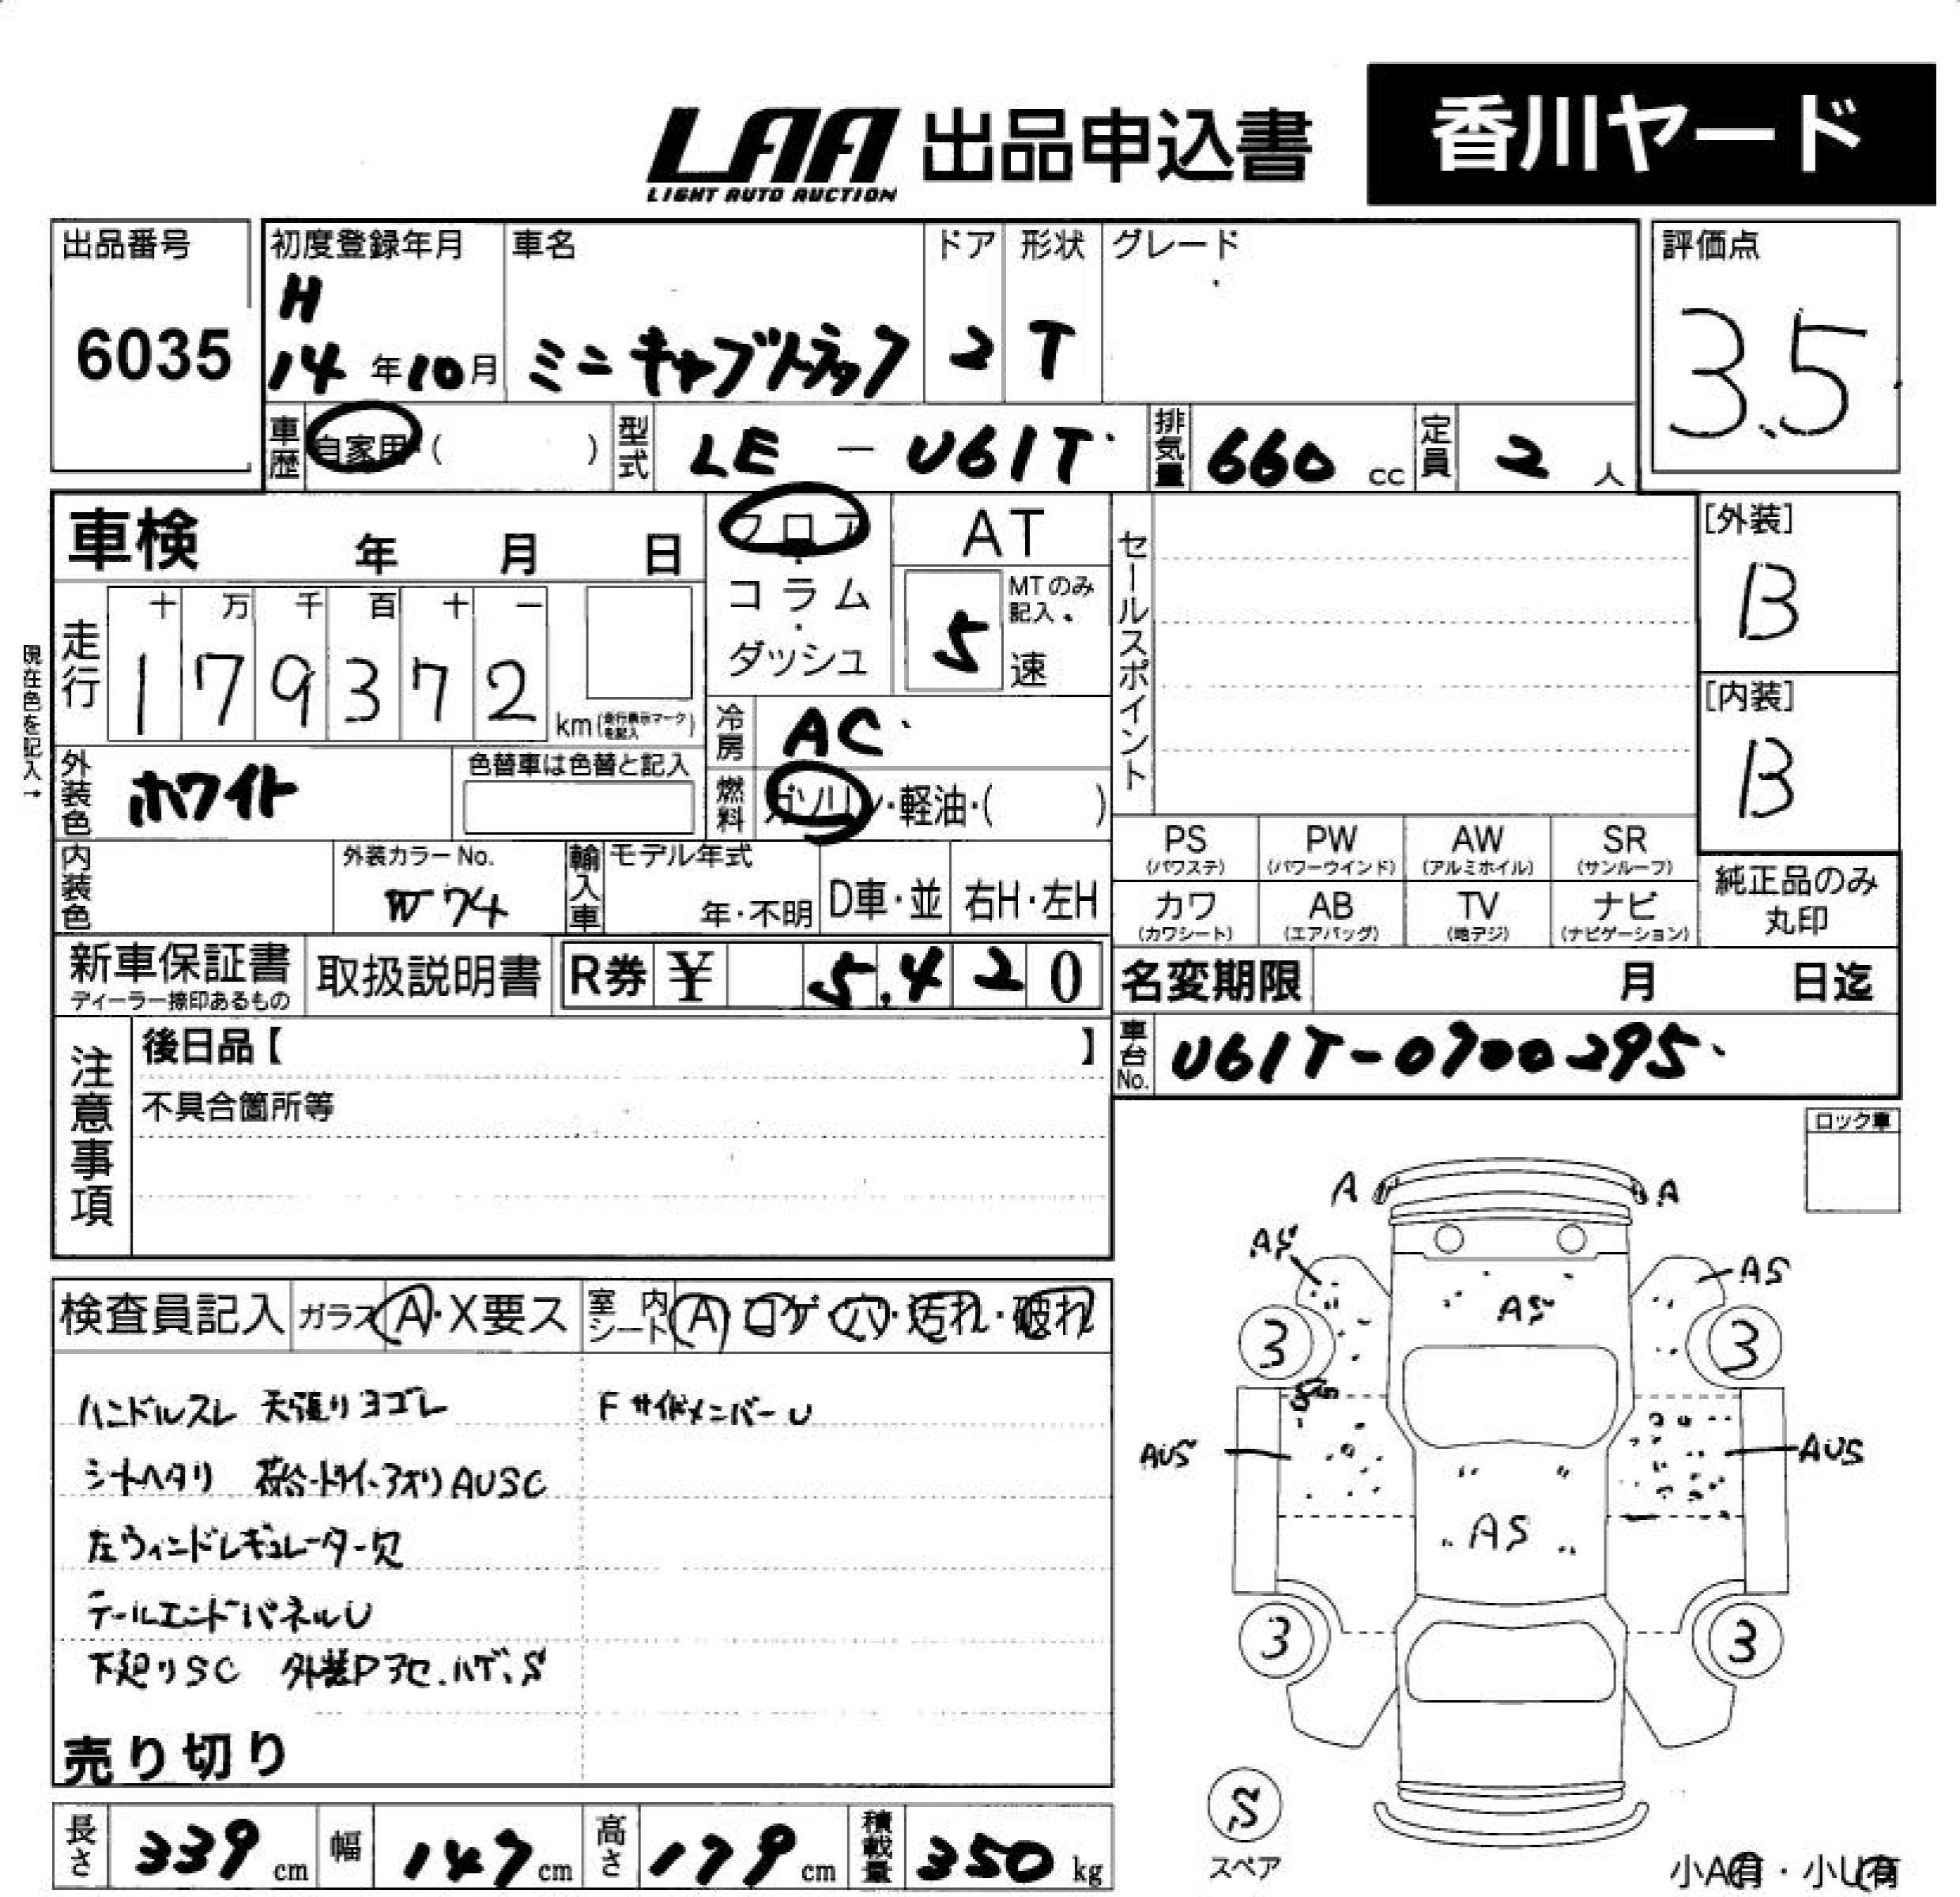 LAA 出品申込書 香川ヤード
LIGHT AUTO AUCTION
出品番号 初度登録年月 車名 ドア 形状 グレード 評価点
6035 H 14年10月 ミニキャブトラック 2 T 3.5
車歴 自家用・( ) 型式 LE - U61T 排気量 660 cc 定員 2 人
車検 年 月 日 フロア・コラム・ダッシュ AT
MTのみ記入 5 速
セールスポイント
[外装] B
[内装] B
現在色を記入→
走行 十 万 千 百 十 一
1 7 9 3 7 2 km(走行表示マークを記入)
冷房 AC
外装色 ホワイト 色替車は色替と記入
燃料 ガソリン・軽油・( )
PS (パワステ) PW (パワーウインド) AW (アルミホイル) SR (サンルーフ)
カワ (カワシート) AB (エアバッグ) TV (地デジ) ナビ (ナビゲーション)
純正品のみ丸印
内装色 外装カラーNo. W74 輸入車 モデル年式 年・不明 D車・並 右H・左H
新車保証書 ディーラー捺印あるもの 取扱説明書 R券 ¥ 5,420
名変期限 月 日迄
車台No. U61T-0700295
注意事項 後日品【 】
不具合箇所等
ロック車
検査員記入 ガラス A・X要ス 室内シート A・コゲ・穴・汚れ・破れ
ハンドルスレ 天張りヨゴレ Fサイドメンバー U
シートヘタリ 荷台・ドライ・アオリ AUSC
左ウィンドレギュレーター欠
テールエンドパネルU
下廻りSC 外装Pアセ、ハゲ、S
売り切り
長さ 339 cm 幅 147 cm 高さ 179 cm 積載量 350 kg
A A
AS AS
AS
3 3
AUS AUS
AS
3 3
S
スペア
小A有・小U有